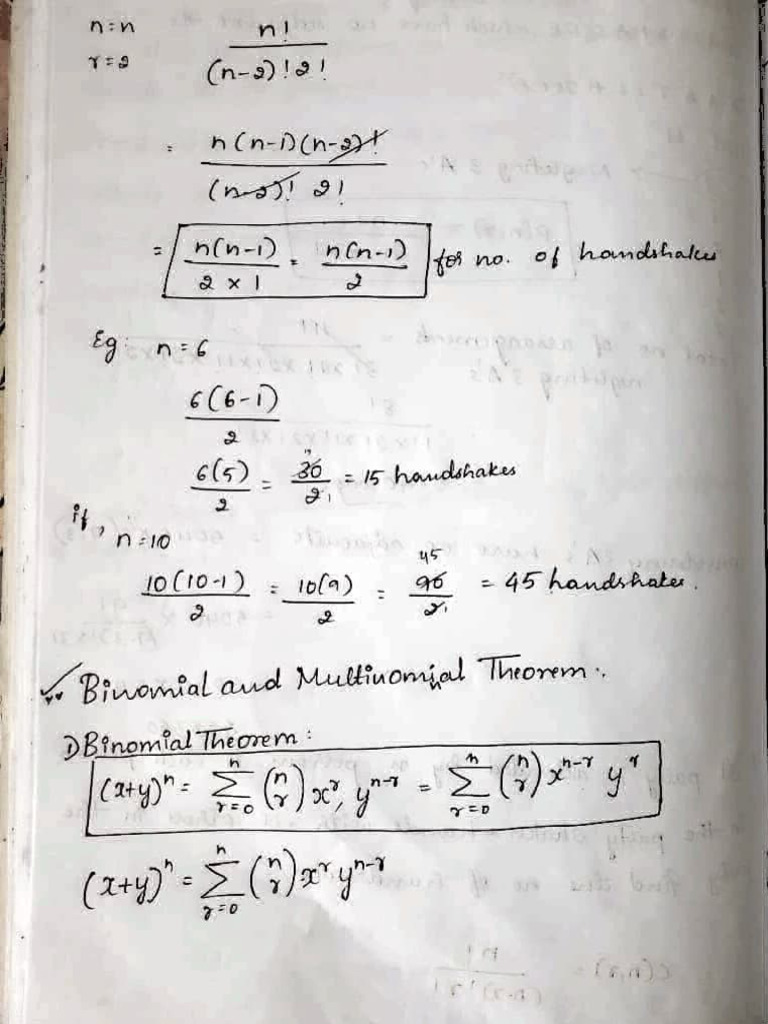 n=n n! / (n-2)!2!
r=2
= n(n-1)(n-2)! / (n-2)! 2!
= n(n-1) / 2 × 1 = n(n-1) / 2 for no. of handshakes
Eg: n=6
6(6-1) / 2
6(5) / 2 = 30 / 2 = 15 handshakes
if, n=10
10(10-1) / 2 = 10(9) / 2 = 90 / 2 = 45 handshakes.
Binomial and Multinomial Theorem:
1) Binomial Theorem:
(x+y)^n = Σ_{r=0}^{n} (n r) x^r, y^{n-r} = Σ_{r=0}^{n} (n r) x^{n-r} y^r
(x+y)^n = Σ_{r=0}^{n} (n r) x^r y^{n-r}